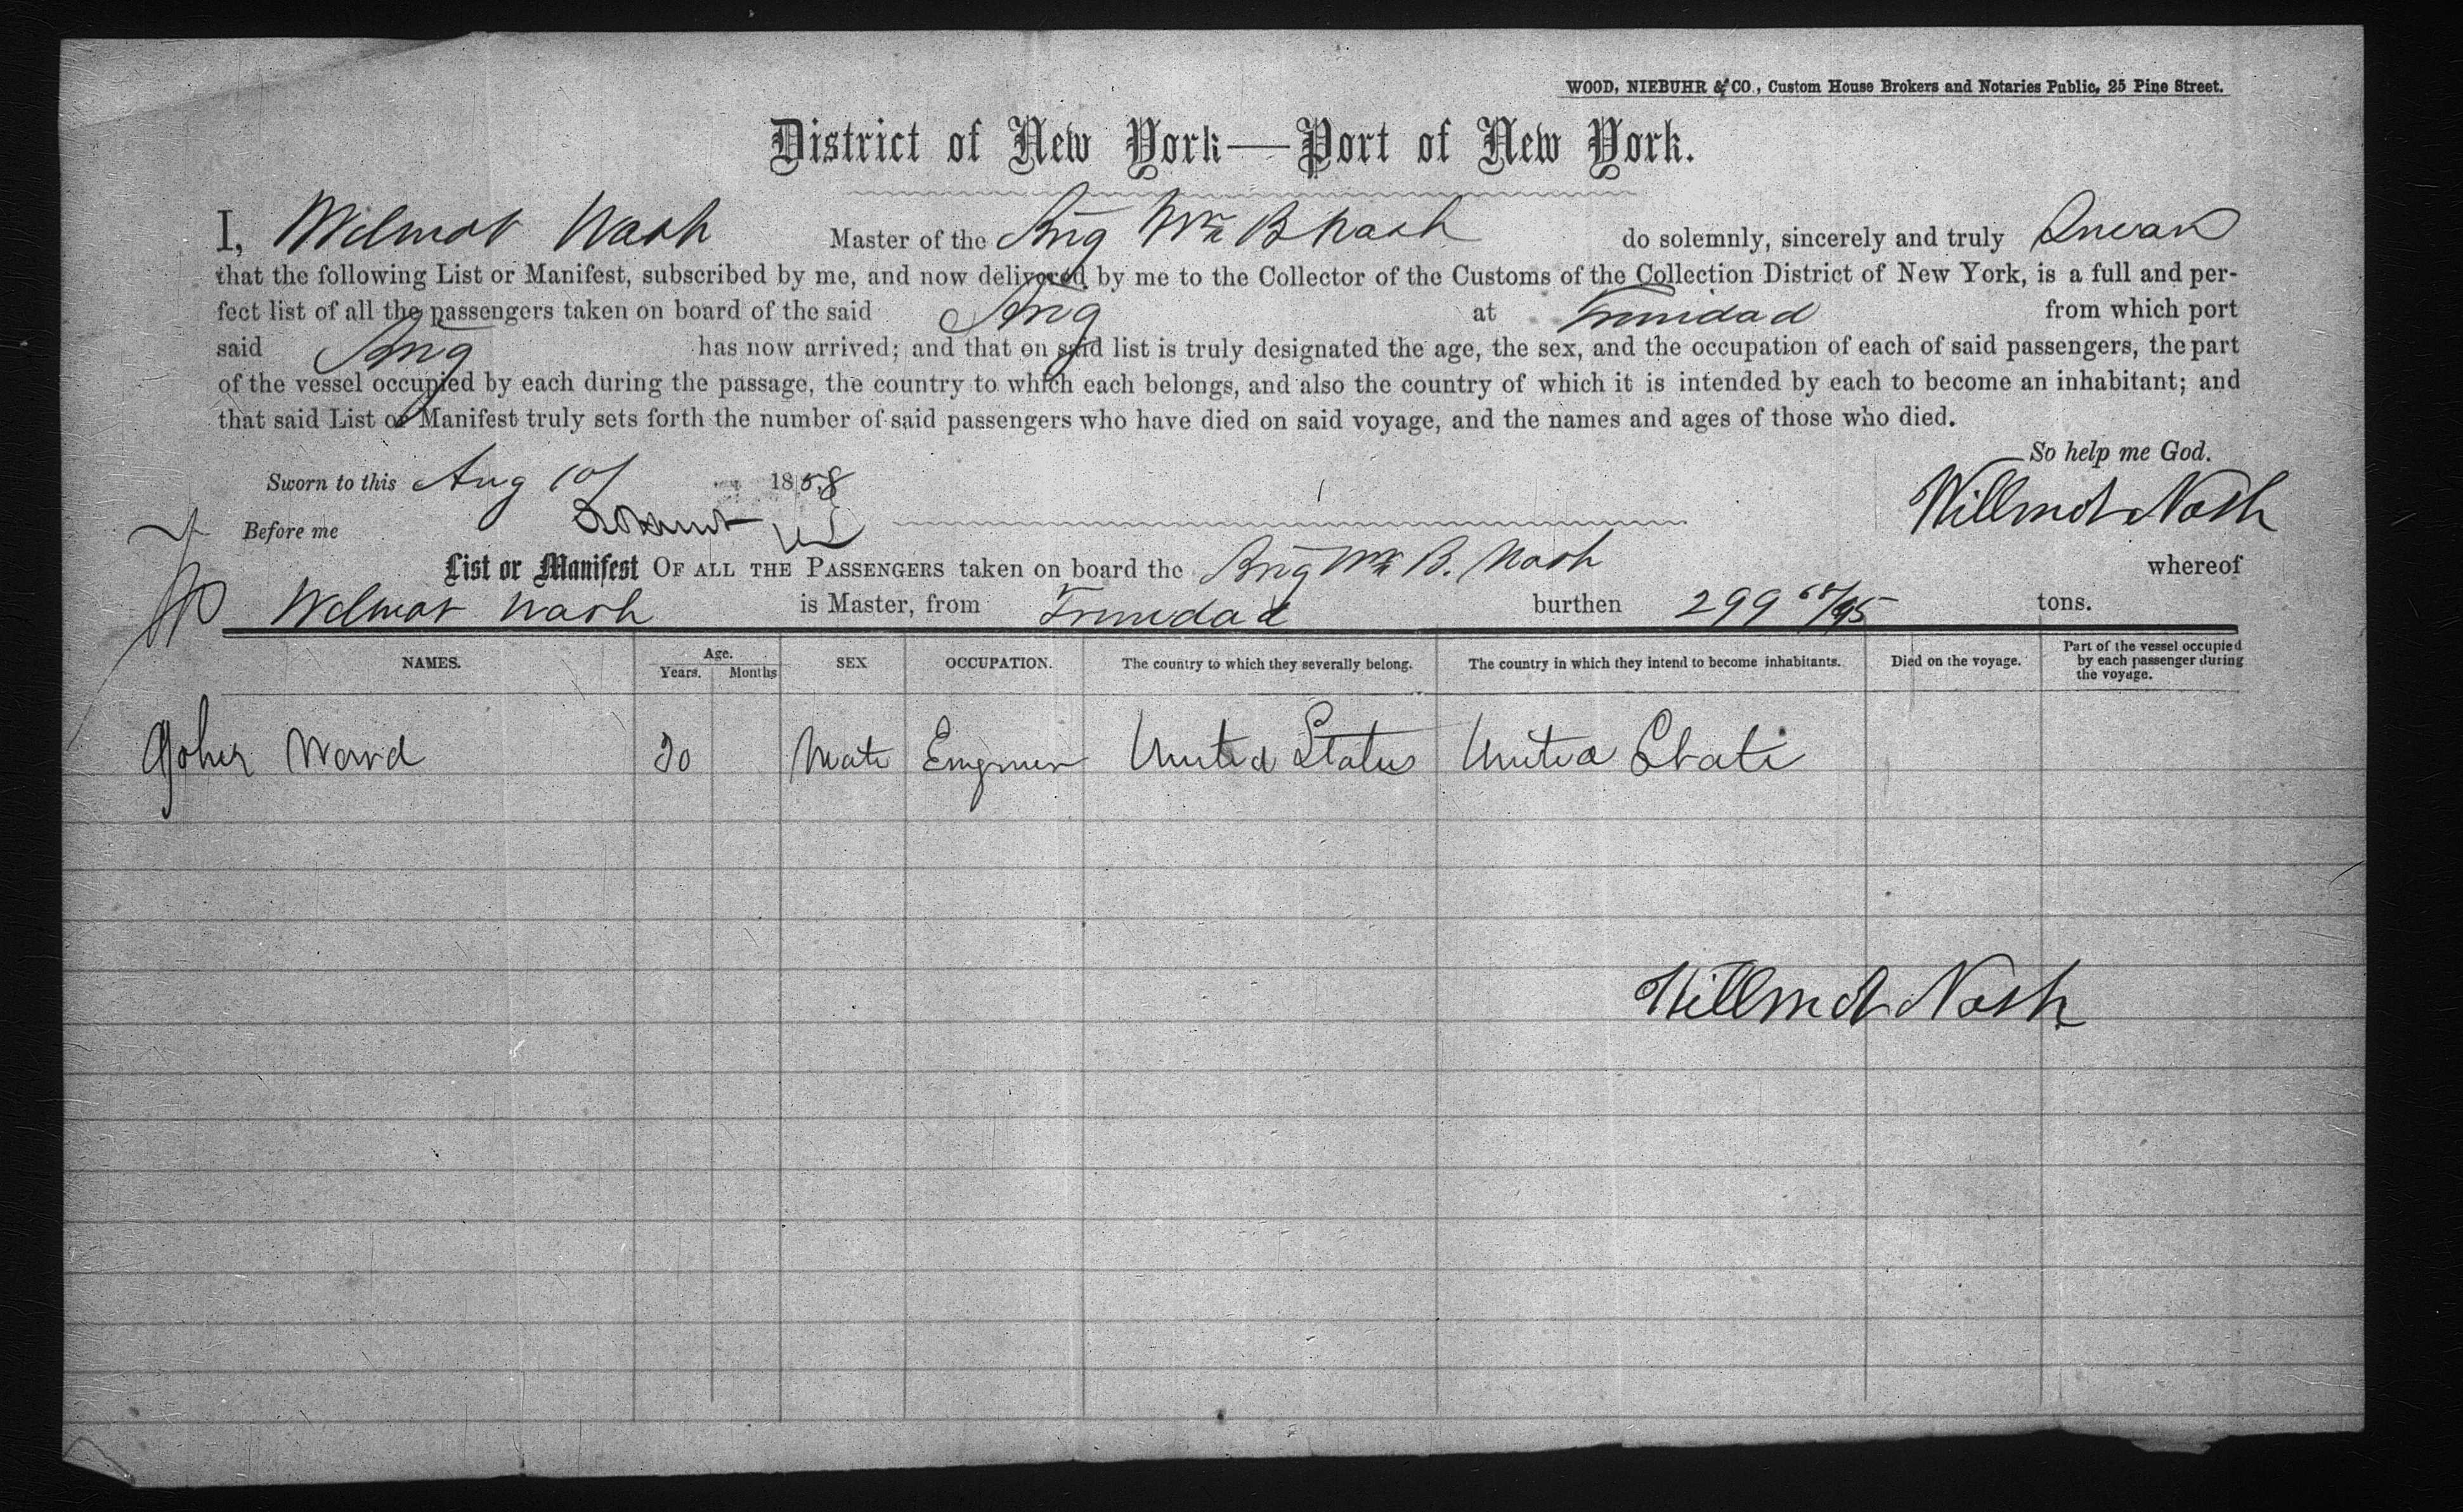 WOOD, NIEBUHR & CO., Custom House Brokers and Notaries Public, 25 Pine Street.
District of New York—Port of New York.
I, Wilmot Nash Master of the Brig Wm B Nash do solemnly, sincerely and truly Swear
that the following List or Manifest, subscribed by me, and now delivered by me to the Collector of the Customs of the Collection District of New York, is a full and per-
fect list of all the passengers taken on board of the said Brig at Trinidad from which port
said Brig has now arrived; and that on said list is truly designated the age, the sex, and the occupation of each of said passengers, the part
of the vessel occupied by each during the passage, the country to which each belongs, and also the country of which it is intended by each to become an inhabitant; and
that said List or Manifest truly sets forth the number of said passengers who have died on said voyage, and the names and ages of those who died.
So help me God.
Sworn to this Aug 10/ 1858
Willmot Nash
Before me
List or Manifest OF ALL THE PASSENGERS taken on board the Brig Wm B. Nash whereof
Wilmot Nash is Master, from Trinidad burthen 299 68/95 tons.
NAMES. Age. Years. Months SEX OCCUPATION. The country to which they severally belong. The country in which they intend to become inhabitants. Died on the voyage. Part of the vessel occupied by each passenger during the voyage.
John Ward 30 Male Engineer United States United States
Willmot Nash